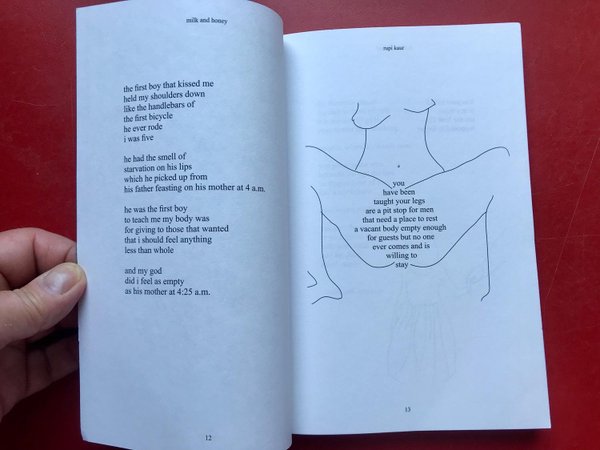 milk and honey
the first boy that kissed me
held my shoulders down
like the handlebars of
the first bicycle
he ever rode
i was five
he had the smell of
starvation on his lips
which he picked up from
his father feasting on his mother at 4 a.m.
he was the first boy
to teach me my body was
for giving to those that wanted
that i should feel anything
less than whole
and my god
did i feel as empty
as his mother at 4:25 a.m.
12
rupi kaur
you
have been
taught your legs
are a pit stop for men
that need a place to rest
a vacant body empty enough
for guests but no one
ever comes and is
willing to
stay
13